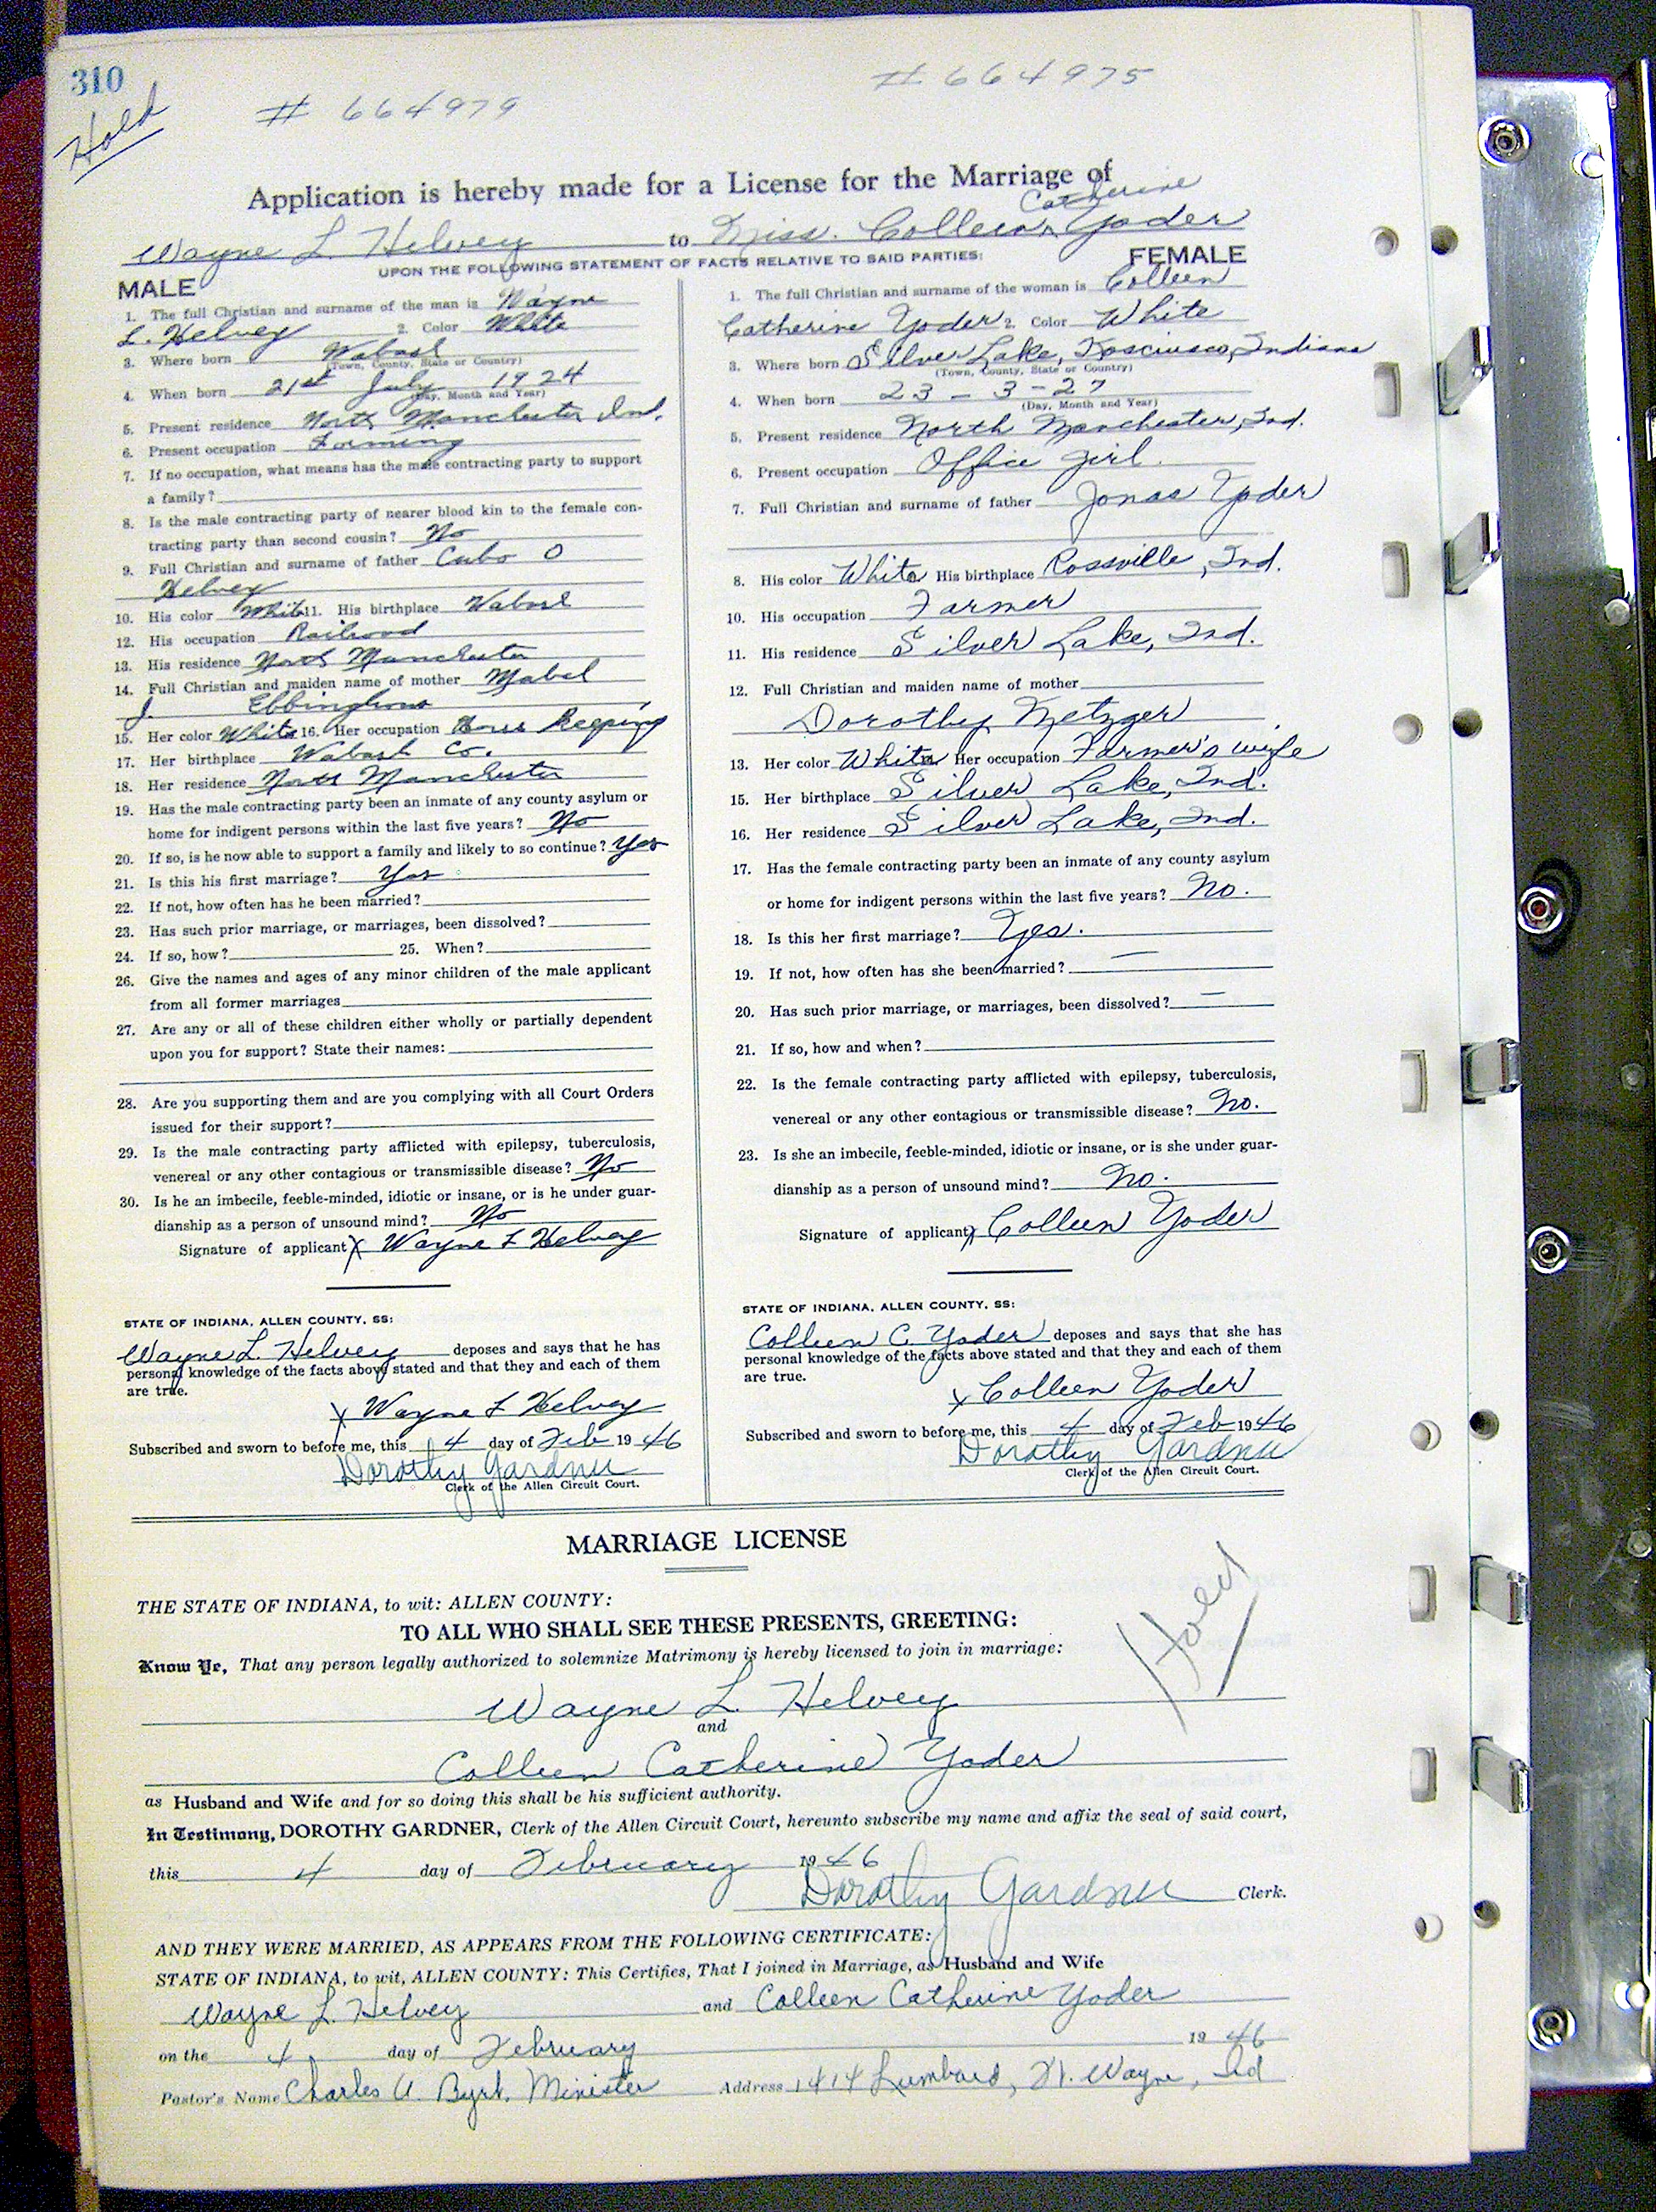 310
Hold
# 664979
# 664975
Application is hereby made for a License for the Marriage of
Catherine
Wayne L. Helvey to Miss. Colleen ^ Yoder
UPON THE FOLLOWING STATEMENT OF FACTS RELATIVE TO SAID PARTIES:
MALE
1. The full Christian and surname of the man is Wayne
L. Helvey 2. Color White
3. Where born Wabash
(Town, County, State or Country)
4. When born 21st July 1924
(Day, Month and Year)
5. Present residence North Manchester Ind.
6. Present occupation Farming
7. If no occupation, what means has the male contracting party to support
a family?
8. Is the male contracting party of nearer blood kin to the female con-
tracting party than second cousin? No
9. Full Christian and surname of father O
Helvey
10. His color White 11. His birthplace Wabash
12. His occupation Railroad
13. His residence North Manchester
14. Full Christian and maiden name of mother Mabel
J.
15. Her color White 16. Her occupation House Keeping
17. Her birthplace Wabash Co.
18. Her residence North Manchester
19. Has the male contracting party been an inmate of any county asylum or
home for indigent persons within the last five years? No
20. If so, is he now able to support a family and likely to so continue? Yes
21. Is this his first marriage? Yes
22. If not, how often has he been married?
23. Has such prior marriage, or marriages, been dissolved?
24. If so, how? 25. When?
26. Give the names and ages of any minor children of the male applicant
from all former marriages
27. Are any or all of these children either wholly or partially dependent
upon you for support? State their names:
28. Are you supporting them and are you complying with all Court Orders
issued for their support?
29. Is the male contracting party afflicted with epilepsy, tuberculosis,
venereal or any other contagious or transmissible disease? No
30. Is he an imbecile, feeble-minded, idiotic or insane, or is he under guar-
dianship as a person of unsound mind? No
Signature of applicant X Wayne L Helvey
STATE OF INDIANA, ALLEN COUNTY, SS:
Wayne L. Helvey deposes and says that he has
personal knowledge of the facts above stated and that they and each of them
are true.
X Wayne L Helvey
Subscribed and sworn to before me, this 4 day of Feb 1946
Dorothy Gardner
Clerk of the Allen Circuit Court.
FEMALE
1. The full Christian and surname of the woman is Colleen
Catherine Yoder 2. Color White
3. Where born Silver Lake, Kosciusco, Indiana
(Town, County, State or Country)
4. When born 23 - 3 - 27
(Day, Month and Year)
5. Present residence North Manchester, Ind.
6. Present occupation Office girl.
7. Full Christian and surname of father Jonas Yoder
8. His color White His birthplace Rossville, Ind.
10. His occupation Farmer
11. His residence Silver Lake, Ind.
12. Full Christian and maiden name of mother
Dorothy Metzger
13. Her color White Her occupation Farmer's wife
15. Her birthplace Silver Lake, Ind.
16. Her residence Silver Lake, Ind.
17. Has the female contracting party been an inmate of any county asylum
or home for indigent persons within the last five years? No.
18. Is this her first marriage? Yes.
19. If not, how often has she been married? —
20. Has such prior marriage, or marriages, been dissolved? —
21. If so, how and when?
22. Is the female contracting party afflicted with epilepsy, tuberculosis,
venereal or any other contagious or transmissible disease? No.
23. Is she an imbecile, feeble-minded, idiotic or insane, or is she under guar-
dianship as a person of unsound mind? No.
Signature of applicant X Colleen Yoder
STATE OF INDIANA, ALLEN COUNTY, SS:
Colleen C. Yoder deposes and says that she has
personal knowledge of the facts above stated and that they and each of them
are true.
X Colleen Yoder
Subscribed and sworn to before me, this 4 day of Feb 1946
Dorothy Gardner
Clerk of the Allen Circuit Court.
MARRIAGE LICENSE
Hold
THE STATE OF INDIANA, to wit: ALLEN COUNTY:
TO ALL WHO SHALL SEE THESE PRESENTS, GREETING:
Know Ye, That any person legally authorized to solemnize Matrimony is hereby licensed to join in marriage:
Wayne L. Helvey
and
Colleen Catherine Yoder
as Husband and Wife and for so doing this shall be his sufficient authority.
In Testimony, DOROTHY GARDNER, Clerk of the Allen Circuit Court, hereunto subscribe my name and affix the seal of said court,
this 4 day of February 1946
Dorothy Gardner Clerk.
AND THEY WERE MARRIED, AS APPEARS FROM THE FOLLOWING CERTIFICATE:
STATE OF INDIANA, to wit, ALLEN COUNTY: This Certifies, That I joined in Marriage, as Husband and Wife
Wayne L. Helvey and Colleen Catherine Yoder
on the 4 day of February 1946
Pastor's Name Charles Minister Address 1414 Lumbard, Ft. Wayne, Ind